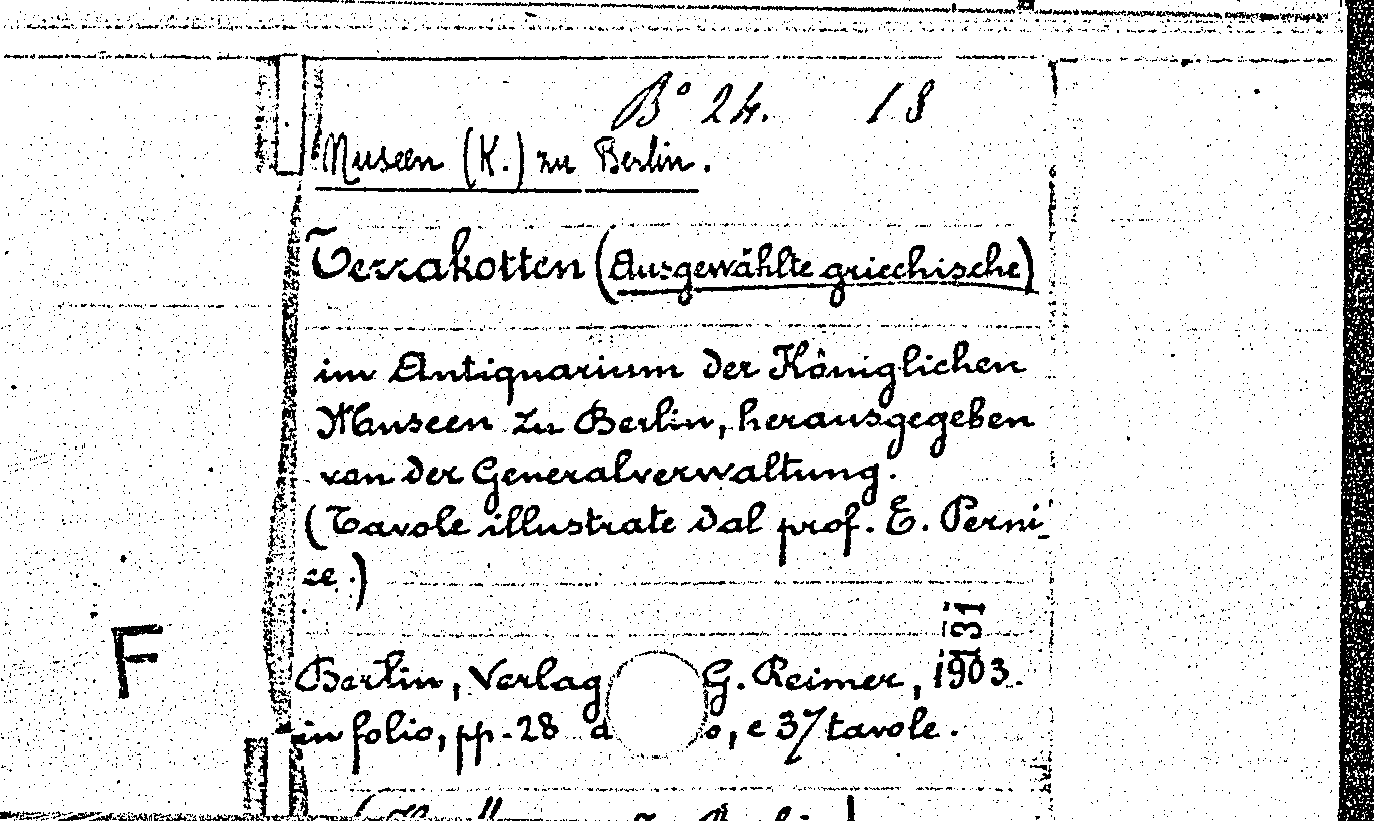 B° 24. 18
Museen (K.) zu Berlin.
Terrakotten (Ausgewählte griechische)
im Antiquarium der Königlichen
Museen zu Berlin, herausgegeben
von der Generalverwaltung.
(Tavole illustrate dal prof. E. Perni-
ce.)
31
F
Berlin, Verlag G. Reimer, 1903.
in folio, pp. 28 d o, e 37 tavole.